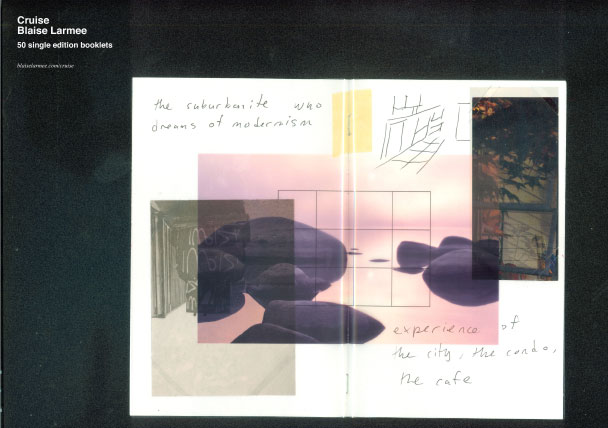 Cruise
Blaise Larmee
50 single edition booklets
blaiselarmee.com/cruise
the suburbanite who
dreams of modernism
experience of
the city, the condo,
the cafe